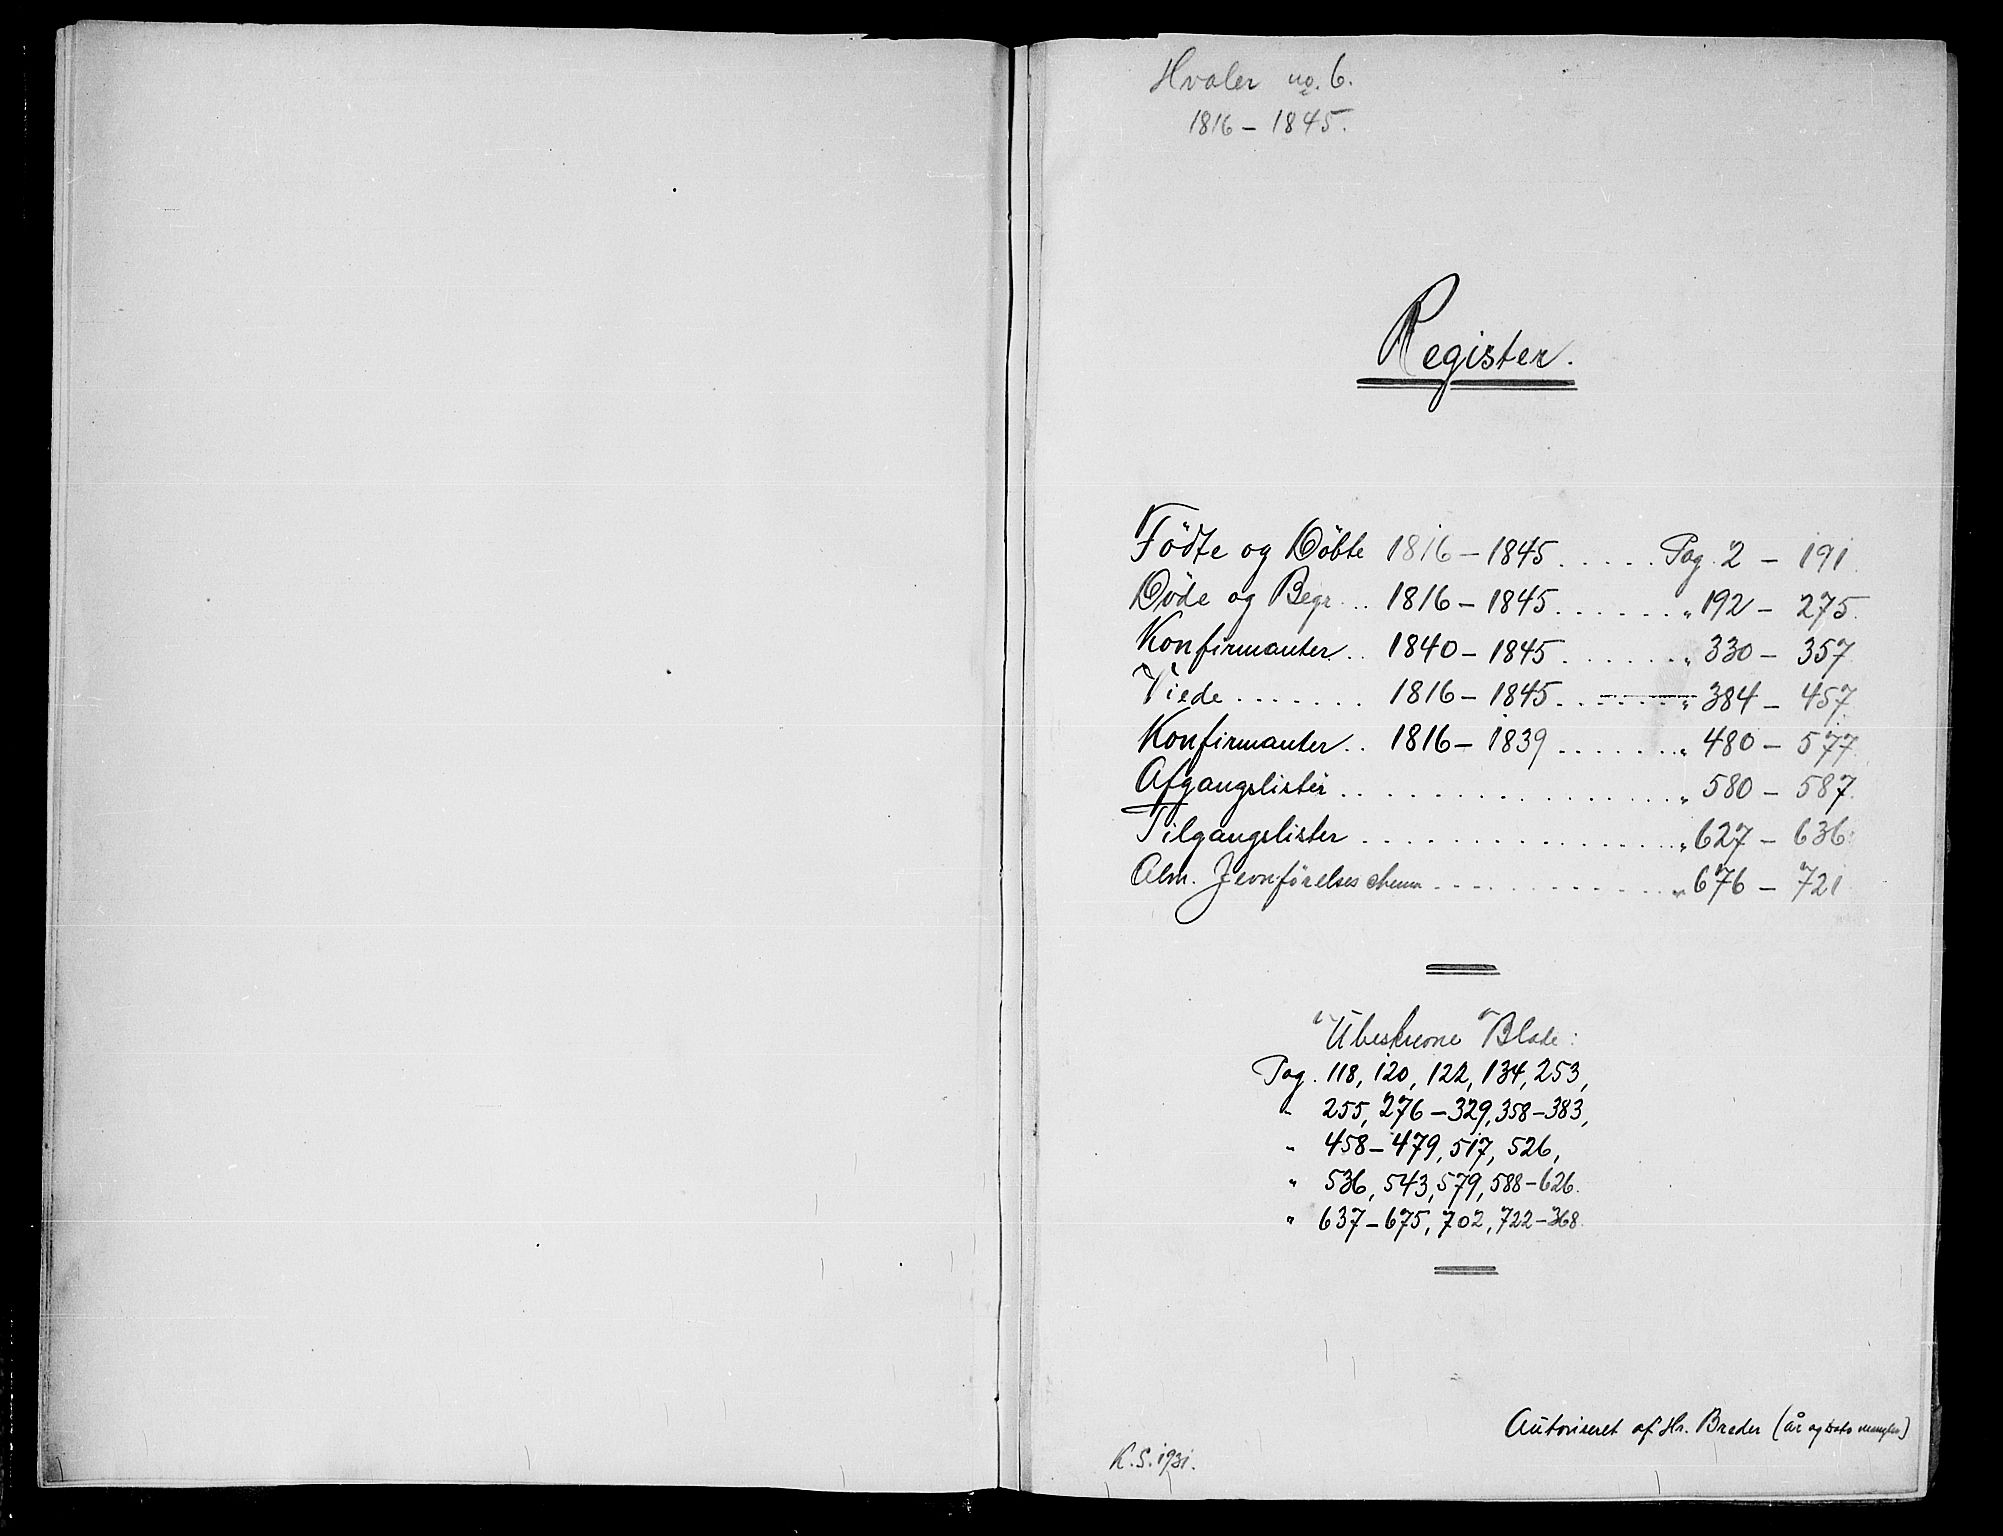 Hvaler no. 6.
1816 – 1845.
Register.
Födte og Döbte 1816 – 1845 . . . . . Pag. 2 – 191.
Døde og Begr. . . 1816 – 1845 . . . . . . „ 192 – 275.
Konfirmanter . . 1840 – 1845 . . . . . . „ 330 – 357
Viede . . . . . . . 1816 – 1845 . . . . . . „ 384 – 457
Konfirmanter . . 1816 – 1839 . . . . . . „ 480 – 577.
Afgangslister . . . . . . . . . . . . . . . „ 580 – 587.
Tilgangslister . . . . . . . . . . . . . . . „ 627 – 636.
Alm. Jevnførelses . . . . . . . . . . . . „ 676 – 721
Ubeskrevne Blade:
Pag. 118, 120, 122, 134, 253,
„ 255, 276 – 329, 358 – 383,
„ 458 – 479, 517, 526,
„ 536, 543, 579, 588 – 626.
„ 637 – 675, 702, 722 – 368.
Autoriseret af Hr. Breder (År og Dato mangler)
K.S. 1931.